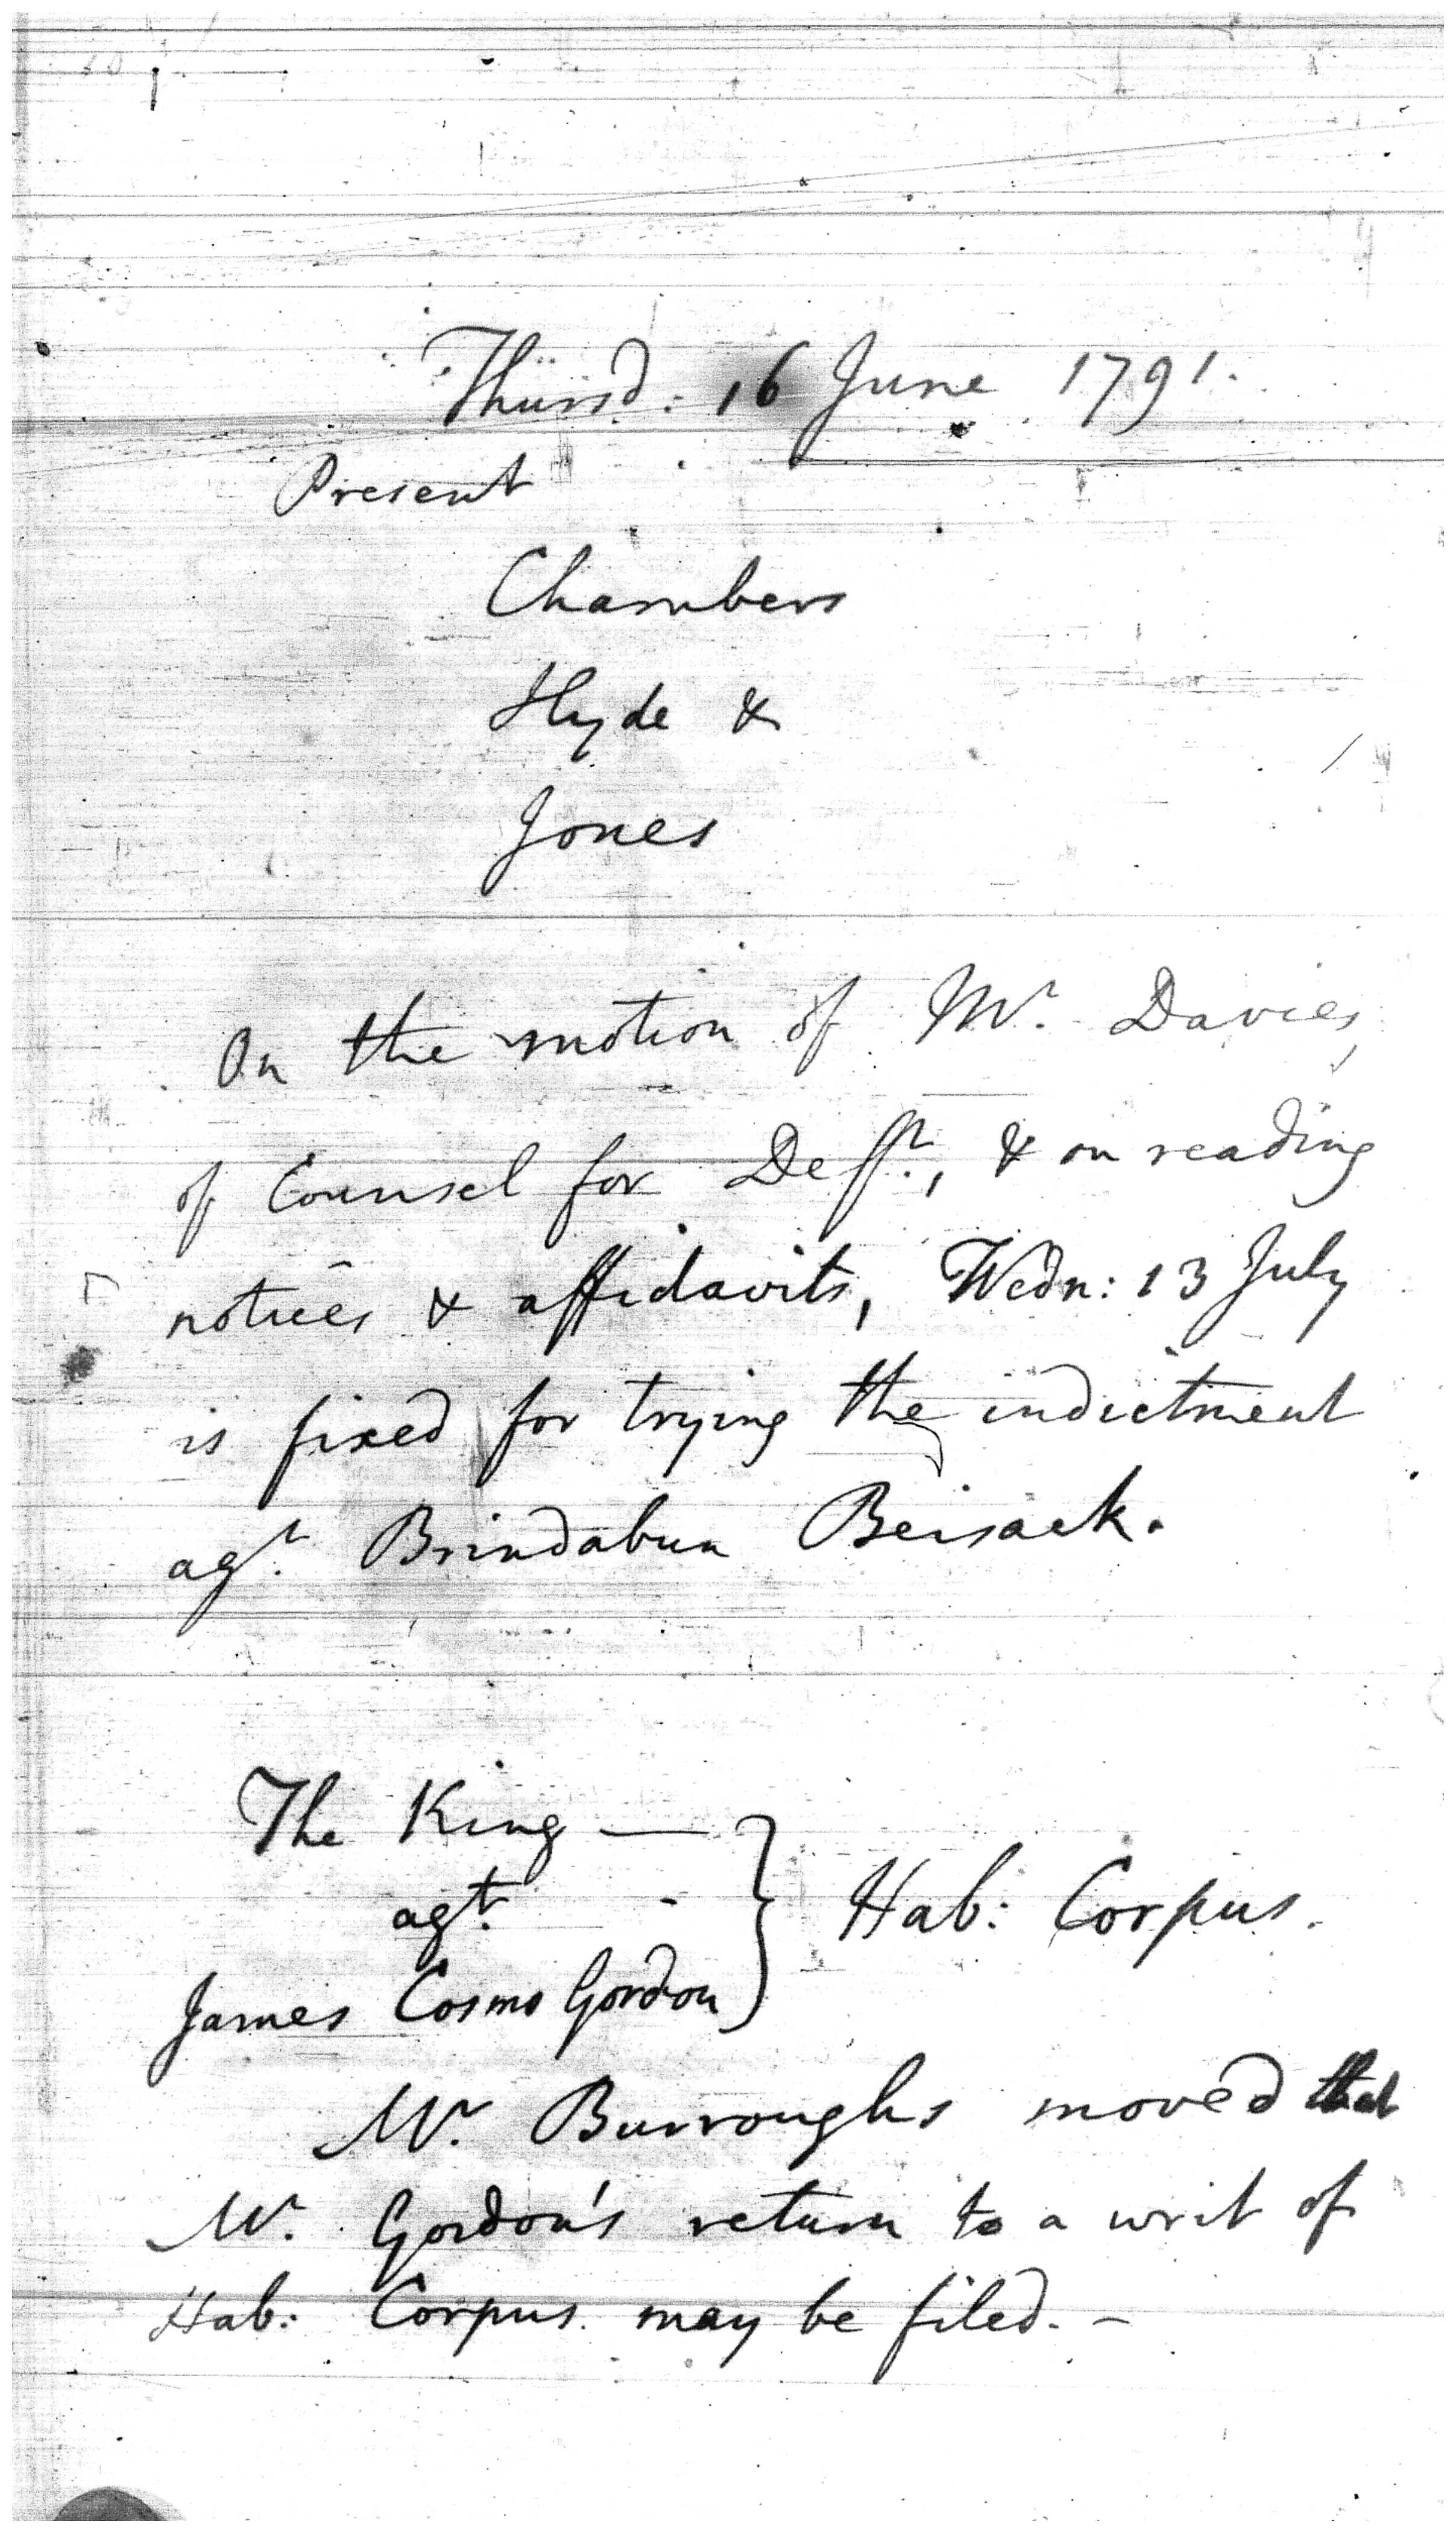 Thursd: 16 June 1791.
Present
Chambers
Hyde &
Jones
On the motion of Mr. Davies,
of Counsel for Deft., & on reading
notices & affidavits, Wedn: 13 July
is fixed for trying the indictment
agt. Brindabun Beisack.
The King —
agt. -
James Cosmo Gordon } Hab: Corpus.
Mr. Burroughs moved that
Mr. Gordon's return to a writ of
Hab: Corpus. may be filed. -